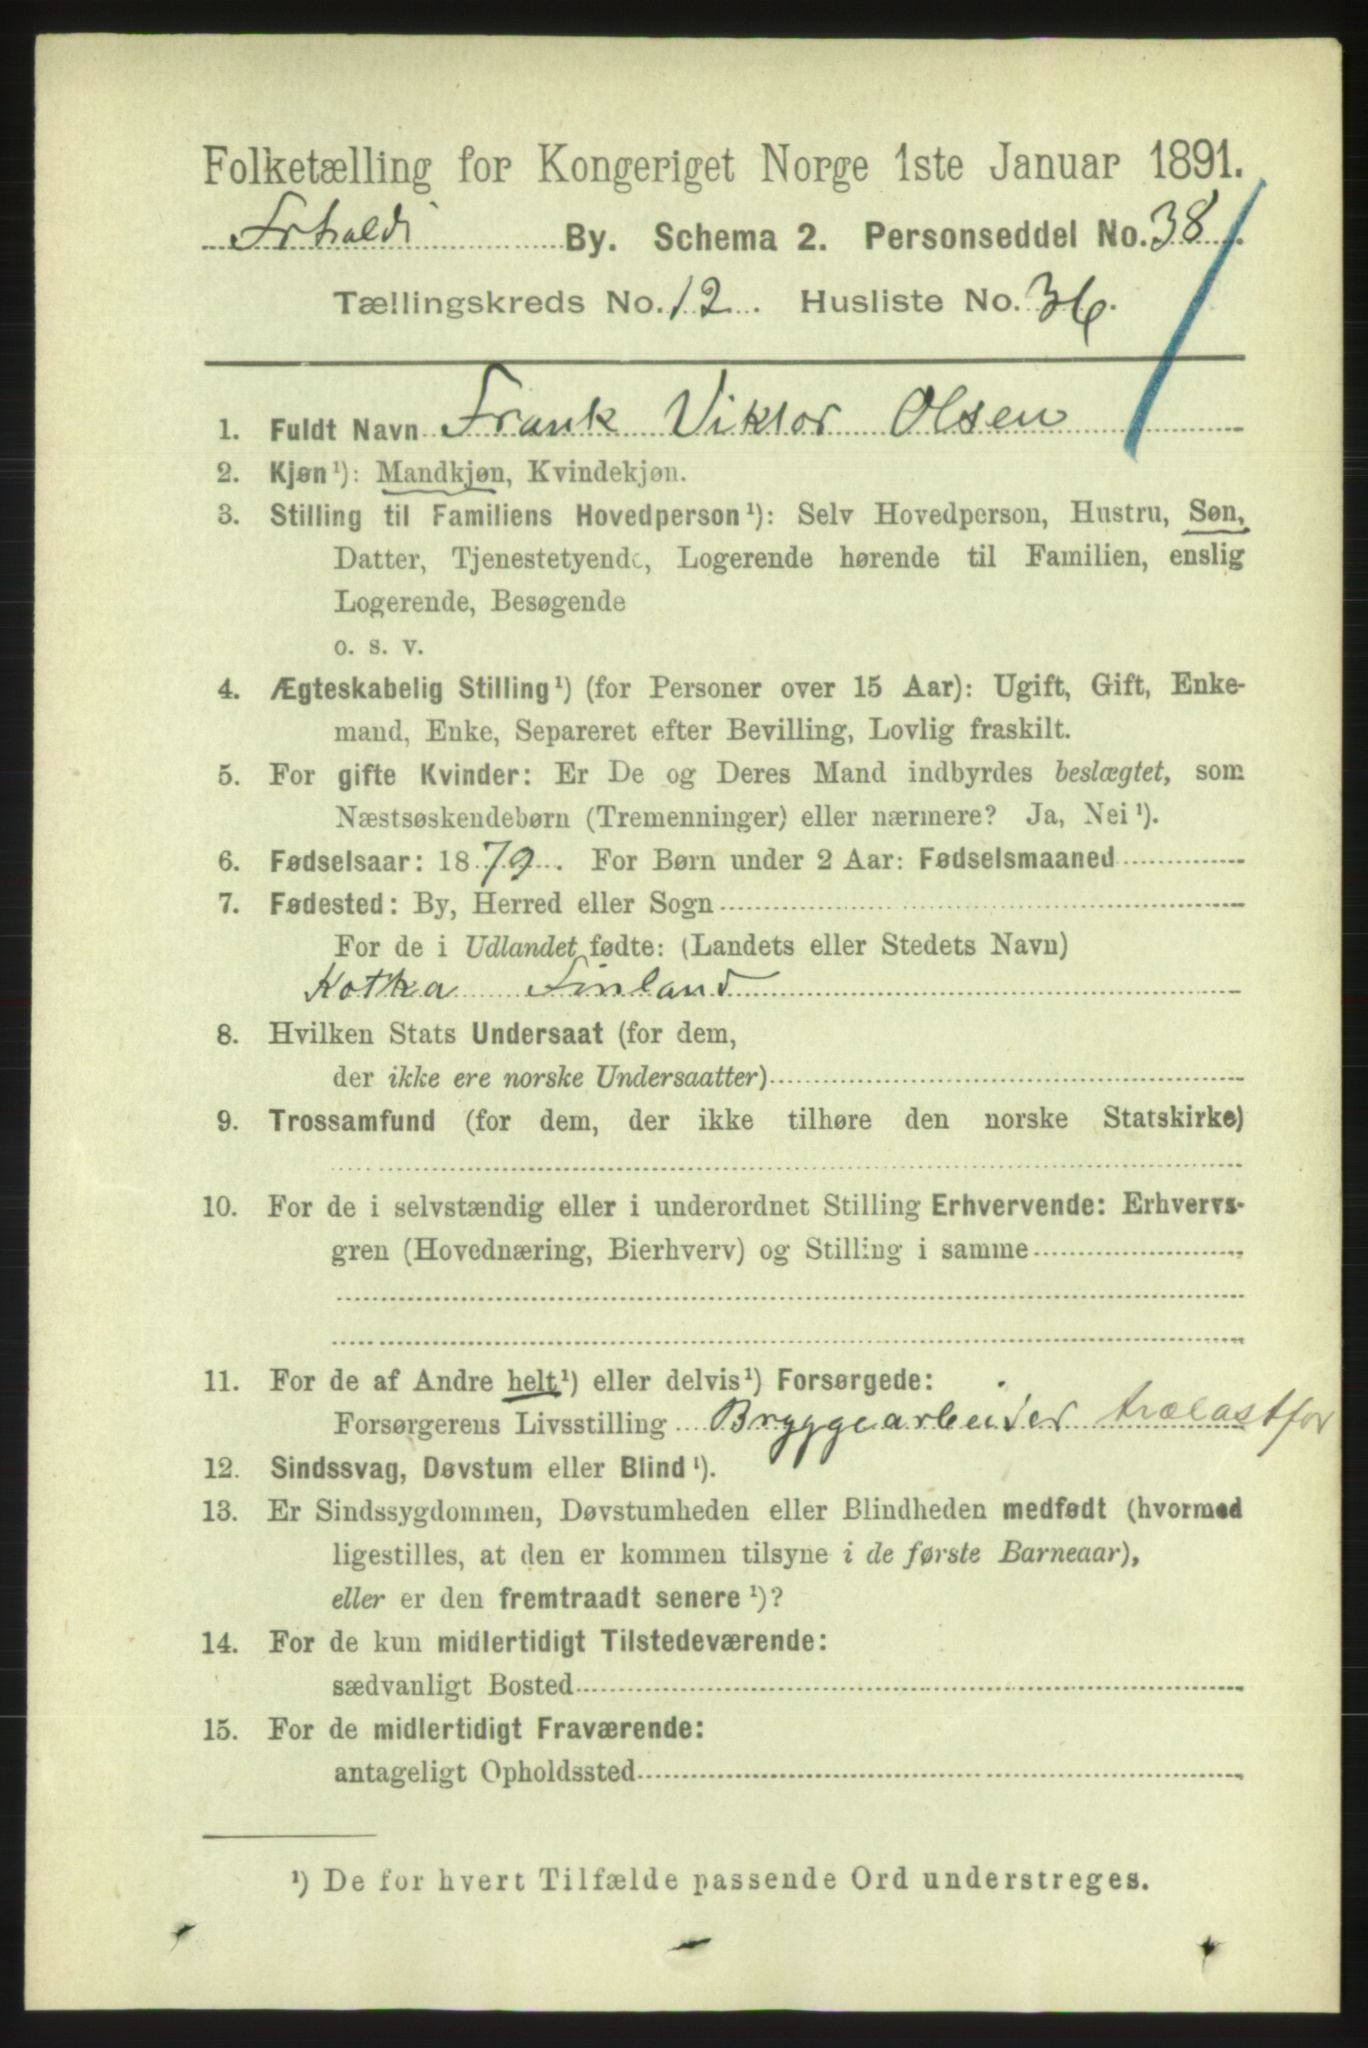 Folketælling for Kongeriget Norge 1ste Januar 1891.
Frhald By. Schema 2. Personseddel No. 38.
Tællingskreds No. 12. Husliste No. 36.
1. Fuldt Navn Frank Viktor Olsen
2. Kjøn¹): Mandkjøn, Kvindekjøn.
3. Stilling til Familiens Hovedperson¹): Selv Hovedperson, Hustru, Søn,
Datter, Tjenestetyende, Logerende hørende til Familien, enslig
Logerende, Besøgende
o. s. v.
4. Ægteskabelig Stilling¹) (for Personer over 15 Aar): Ugift, Gift, Enke-
mand, Enke, Separeret efter Bevilling, Lovlig fraskilt.
5. For gifte Kvinder: Er De og Deres Mand indbyrdes beslægtet, som
Næstsøskendebørn (Tremenninger) eller nærmere? Ja, Nei¹).
6. Fødselsaar: 1879. For Børn under 2 Aar: Fødselsmaaned
7. Fødested: By, Herred eller Sogn
For de i Udlandet fødte: (Landets eller Stedets Navn)
Kotka Finland
8. Hvilken Stats Undersaat (for dem,
der ikke ere norske Undersaatter)
9. Trossamfund (for dem, der ikke tilhøre den norske Statskirke)
10. For de i selvstændig eller i underordnet Stilling Erhvervende: Erhvervs-
gren (Hovednæring, Bierhverv) og Stilling i samme
11. For de af Andre helt¹) eller delvis¹) Forsørgede:
Forsørgerens Livsstilling Bryggearbeider trælastfor
12. Sindssvag, Døvstum eller Blind¹).
13. Er Sindssygdommen, Døvstumheden eller Blindheden medfødt (hvormed
ligestilles, at den er kommen tilsyne i de første Barneaar),
eller er den fremtraadt senere¹)?
14. For de kun midlertidigt Tilstedeværende:
sædvanligt Bosted
15. For de midlertidigt Fraværende:
antageligt Opholdssted
¹) De for hvert Tilfælde passende Ord understreges.